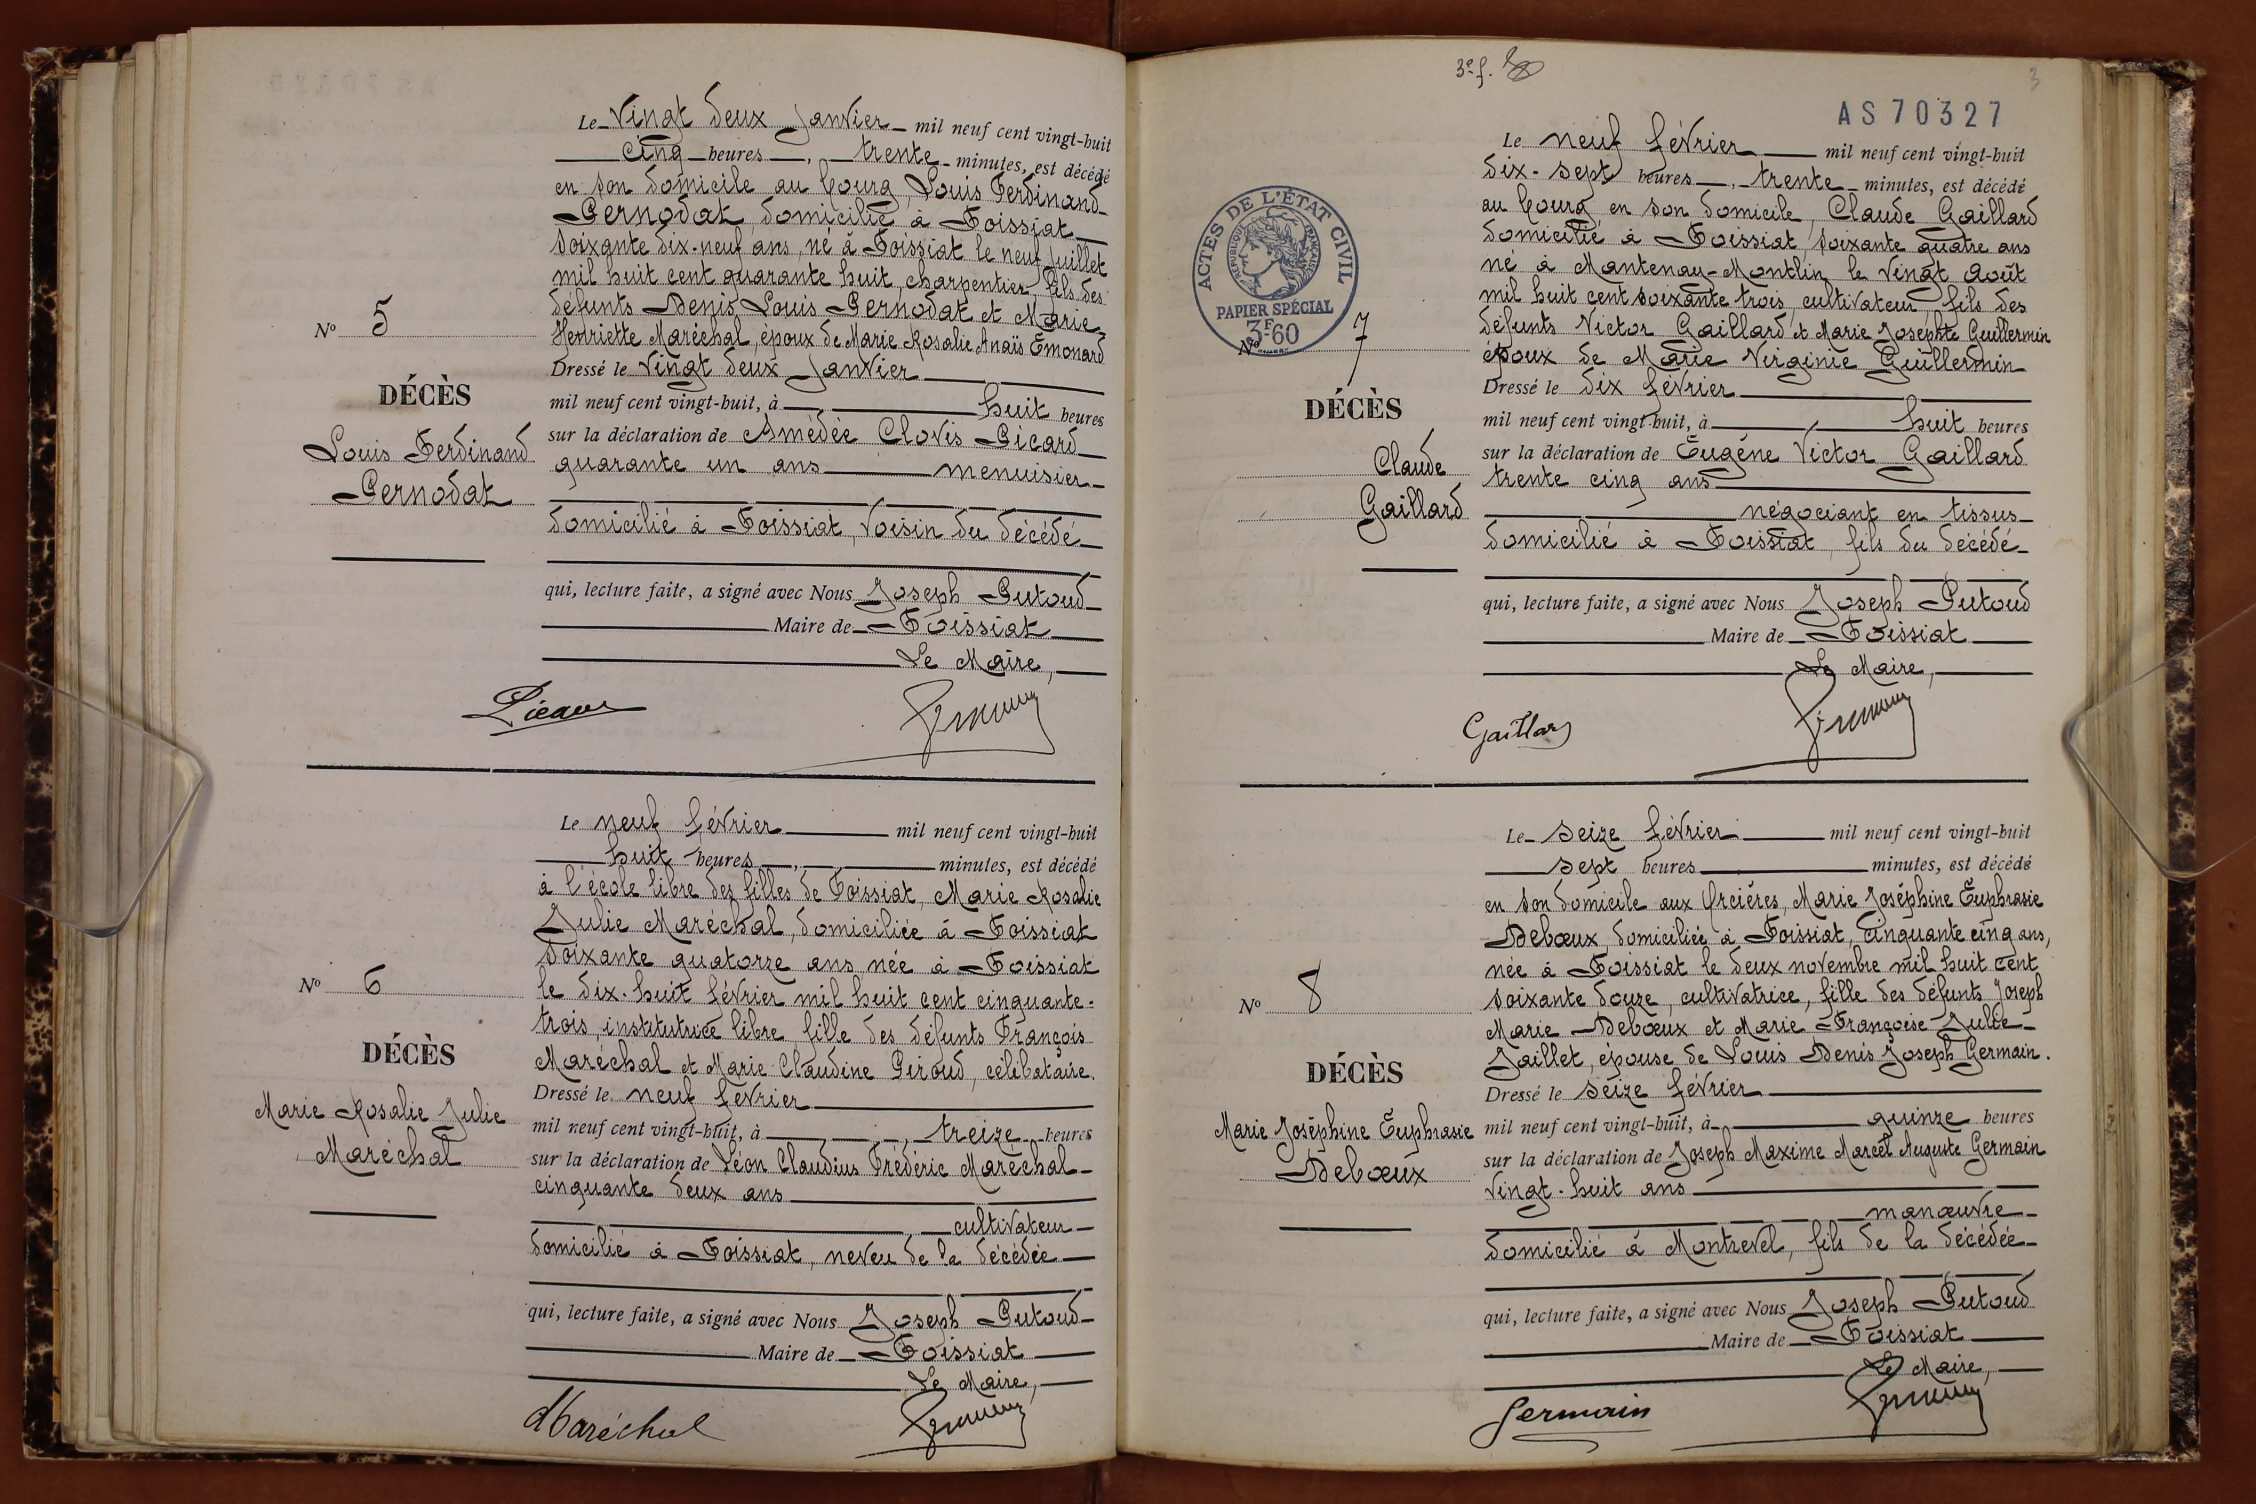 Le vingt deux Janvier mil neuf cent vingt-huit
cinq heures, trente minutes, est décédé
en son domicile au bourg, Louis Ferdinand
Pernodat, domicilié à Foissiat
soixante dix-neuf ans, né à Foissiat le neuf Juillet
mil huit cent quarante huit, charpentier, fils des
défunts Denis Louis Pernodat et Marie
Henriette Maréchal, époux de Marie Rosalie Anaïs Émonard
Dressé le vingt deux Janvier
mil neuf cent vingt-huit, à huit heures
sur la déclaration de Amédée Clovis Picard
quarante un ans menuisier
domicilié à Foissiat, voisin du décédé
qui, lecture faite, a signé avec Nous Joseph Putoud
Maire de Foissiat
Le Maire,
Picard
Nº 5
DÉCÈS
Louis Ferdinand
Pernodat
Le neuf février mil neuf cent vingt-huit
huit heures, minutes, est décédé
à l'école libre des filles de Foissiat, Marie Rosalie
Julie Maréchal, domiciliée à Foissiat
soixante quatorze ans née à Foissiat
le dix-huit février mil huit cent cinquante-
trois, institutrice libre, fille des défunts François
Maréchal et Marie Claudine Piroud, célibataire.
Dressé le neuf février
mil neuf cent vingt-huit, à treize heures
sur la déclaration de Léon Claudius Frédéric Maréchal
cinquante deux ans
cultivateur
domicilié à Foissiat, neveu de la décédée
qui, lecture faite, a signé avec Nous Joseph Putoud
Maire de Foissiat
Le Maire,
Maréchal
Nº 6
DÉCÈS
Marie Rosalie Julie
Maréchal
3e f.
3
AS 70327
Le neuf février mil neuf cent vingt-huit
dix-sept heures, trente minutes, est décédé
au bourg en son domicile, Claude Gaillard
domicilié à Foissiat, soixante quatre ans
né à Mantenay-Montlin le vingt août
mil huit cent soixante trois, cultivateur, fils des
défunts Victor Gaillard et Marie Josephte Guillermin
époux de Marie Virginie Guillermin
Dressé le dix février
mil neuf cent vingt-huit, à huit heures
sur la déclaration de Eugène Victor Gaillard
trente cinq ans
négociant en tissus
domicilié à Foissiat, fils du décédé
qui, lecture faite, a signé avec Nous Joseph Putoud
Maire de Foissiat
Le Maire,
Gaillard
ACTES DE L'ÉTAT CIVIL
RÉPUBLIQUE FRANÇAISE
PAPIER SPÉCIAL
3F60
Nº 7
DÉCÈS
Claude
Gaillard
Le seize février mil neuf cent vingt-huit
sept heures minutes, est décédé
en son domicile aux Orcières, Marie Joséphine Euphrasie
Debœux, domiciliée à Foissiat, cinquante cinq ans,
née à Foissiat le deux novembre mil huit cent
soixante douze, cultivatrice, fille des défunts Joseph
Marie Debœux et Marie Françoise Julie
Jaillet, épouse de Louis Denis Joseph Germain.
Dressé le seize février
mil neuf cent vingt-huit, à quinze heures
sur la déclaration de Joseph Maxime Marcel Auguste Germain
vingt-huit ans
manœuvre
domicilié à Montrevel, fils de la décédée
qui, lecture faite, a signé avec Nous Joseph Putoud
Maire de Foissiat
Le Maire,
Germain
Nº 8
DÉCÈS
Marie Joséphine Euphrasie
Debœux